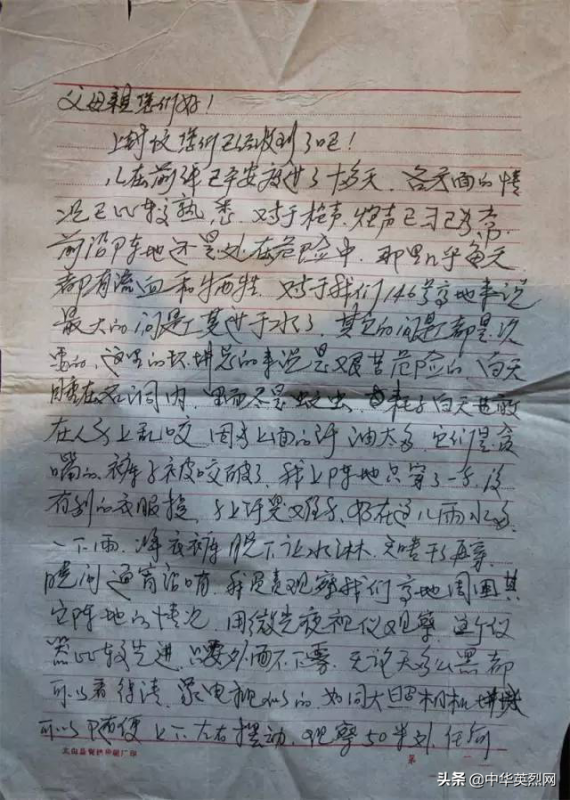 父母亲您们好！
上封信您们已经收到了吧！
儿在前线已平安度过了十多天，各方面的情
况已比较熟悉，对于枪声、炮声已习已为常，
前沿阵地还是处在危险中，那里几乎每天
都有流血和牺牲，对于我们146号高地来说
最大的问题莫过于水了，其它问题都是次
要的，这里的环境总的来说是艰苦危险的，白天
睡在石洞内，里面尽是蚊虫，耗子白天也敢
在人身上乱咬，因身上面的汗油太多，它们是贪
嘴的，裤子被咬破了，我上阵地只穿了一身，没
有别的衣服换，身上汗臭，好在这儿雨水多，
一下雨，将衣裤脱下让水淋，
晚间通宵活哨，我负责观察我们高地周围其
它阵地的情况，用微光夜视仪观察，这个仪
器比较先进，只要外面不下雾，无论天多么黑都
可以看得清，象电视似的，如同大照相机一样
可以随便上下左右摆动，观察50米外任何
文山县
第
头条 @中华英烈网